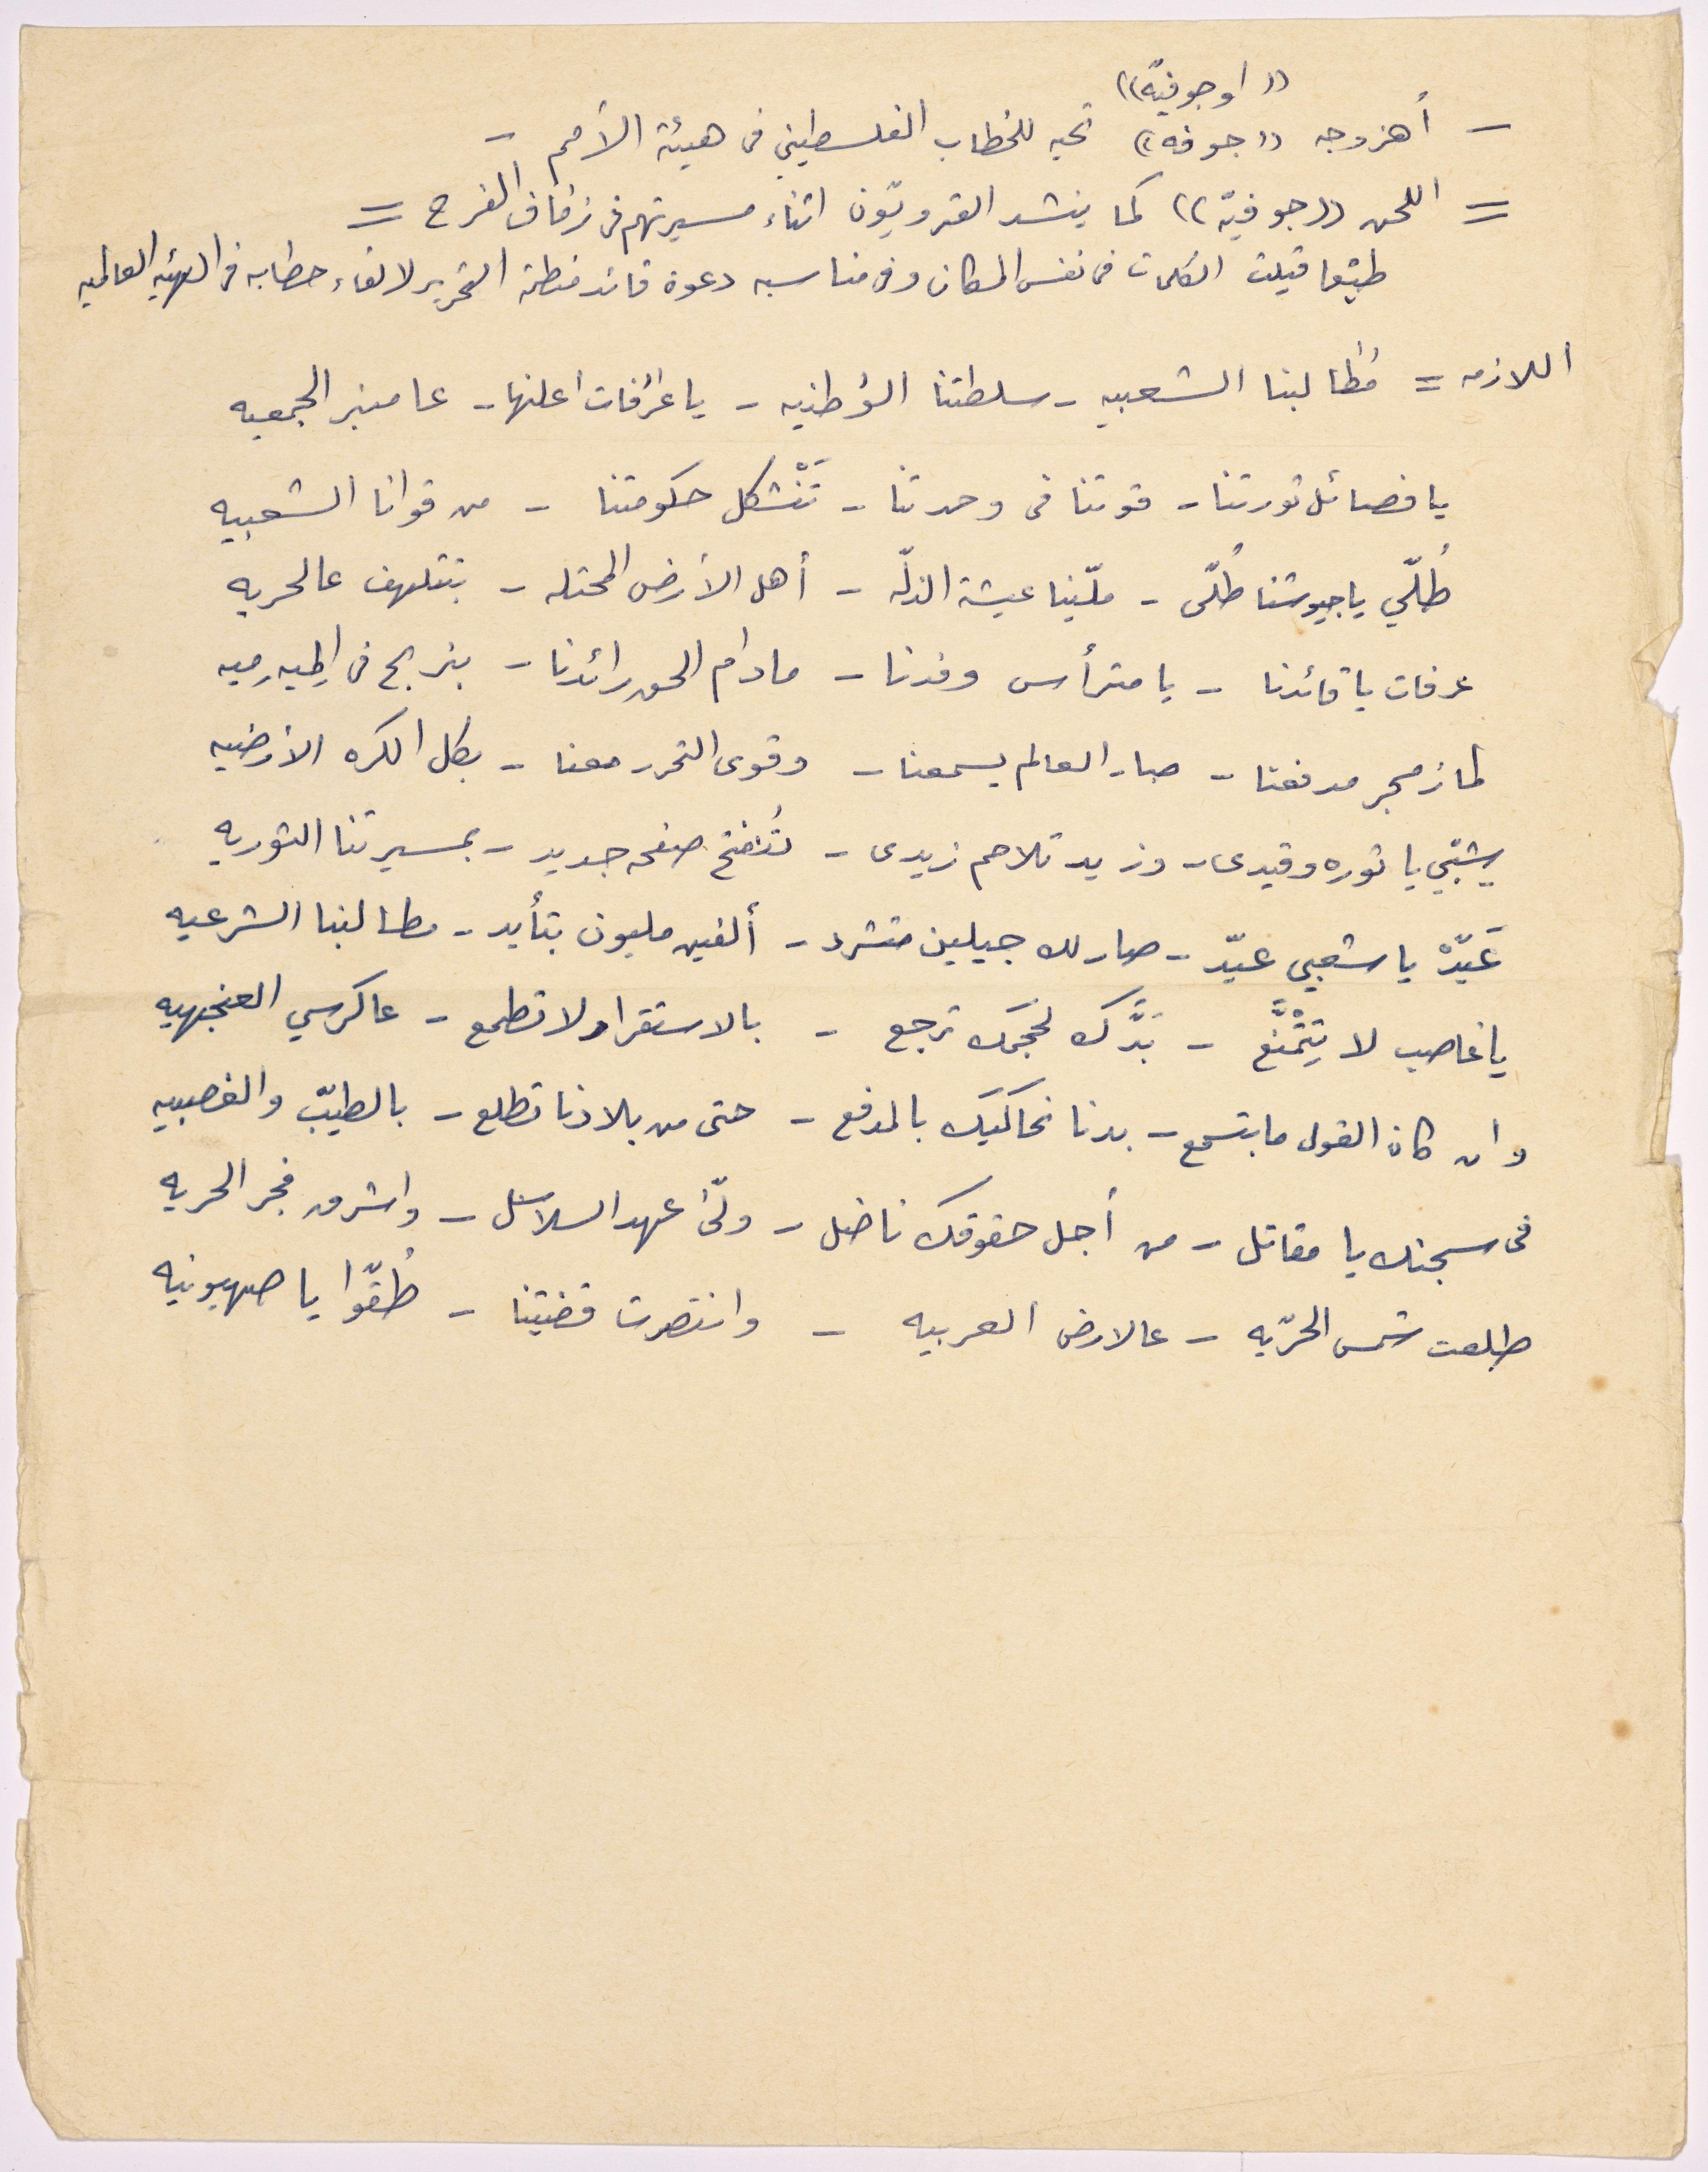 (( اوجوفيّه))
- أهزوجه ((جوفه)) تحيه للخطاب الفلسطيني فى هيئة الأمم -
= اللحن ((جوفيّه)) كما ينشد القرويّون اثناء مسيرتهم فى زفاف الفرح =
طبعا قيلت الكلمات فى نفس المكان وفى مناسبه دعوة قائد منظمة التحرير لالقاء خطابه فى الهيئه العالميه
اللازمه = مُطالبنا الشعبيه - سلطتنا الوُطنيه - يا عَرَفات اعلنها - عا منبر الجمعيه
يا فصائل ثورتنا - قوتنا فى وحدتنا - تَنْشكل حكومتنا - من قوانا الشعبيه
طُلّي يا جيوشنا طُلّى - ملّينا عيشة الذلّه - أهل الأرض المحتله - بتتلهف عالحريه
عرفات يا قائدنا - يا مترأس وفدنا - مادام الحق رائدنا - بنربح فى الميه ميه
لما زمجر مدفعنا - صار العالم يسمعنا - وقوى التحرر معنا - بكل الكره الأرضيه
شبّي يا ثوره وقيدى - وزيد تلاحم زيدى - تُنفتح صفحه جديد - بمسيرتنا الثوريه
عَيّدْ يا شعبي عيّد - صارلك جيلين متشرد - ألفين مليون بتأيد - مطالبنا الشرعيه
يا غاصب لا تِتْمَنَّع - بَدَّك لحَجمَك ترجع - بالاستقرار لا تطمع - عاكرسي العنجهيه
وان كان القول ما بتسمع - بدنا نحاكيك بالمدفع - حتى من بلادنا تطلع - بالطيّب والغصبيه
فى سجنك يا مقاتل - من أجل حقوقك ناضل - ولّى عهد السلاسل - واشرق فجر الحريه
طلعت شمس الحرّيه - عالارض العربيه - وانتصرت قضيتنا - طُقّوا يا صهيونيه